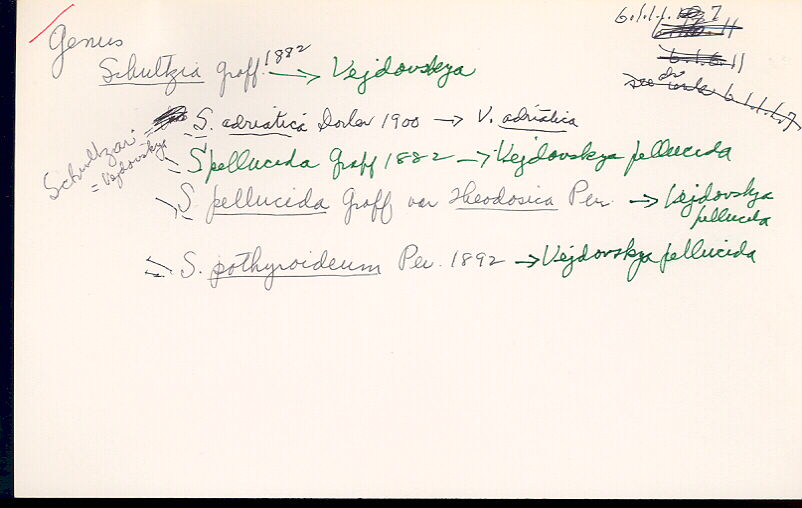 Genus
6.1.1.1. 7
Schultzia Graff 1882 → Vejdovskya
6.1.6.11
see under 6.1.1.1.7
S. adriatica Dorler 1900 → V. adriatica
Schultzia
= Vejdovskya
S pellucida Graff 1882 → Vejdovskya pellucida
S. pellucida Graff var theodosica Per. → Vejdovskya pellucida
S. pothyroideum Per. 1892 → Vejdovskya pellucida